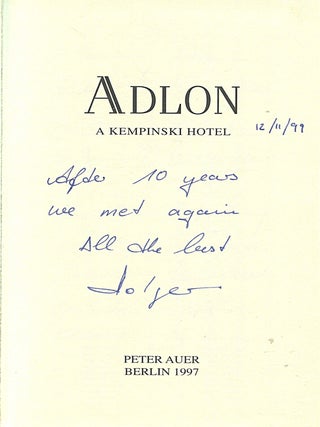 ADLON
A KEMPINSKI HOTEL
12/11/99
After 10 years
we met again
All the best
Holger
PETER AUER
BERLIN 1997